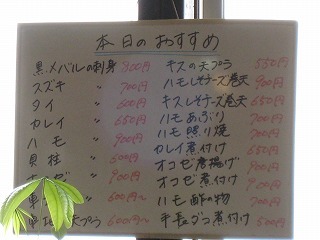 本日のおすすめ
黒メバルの刺身 800円
スズキ 〃 700円
タイ 〃 600円
カレイ 〃 650円
ハモ 〃 900円
貝柱 〃 600円
〃
600円〜
天プラ 600円〜
キスの天プラ 550円
ハモしそチーズ巻天 900円
キスしそチーズ巻天 650円
ハモあぶり 700円
ハモ照り焼 700円
カレイ煮付け 650円
オコゼ唐揚げ 900円
オコゼ煮付け 900円
ハモ酢の物 700円
手長ダコ煮付け 500円